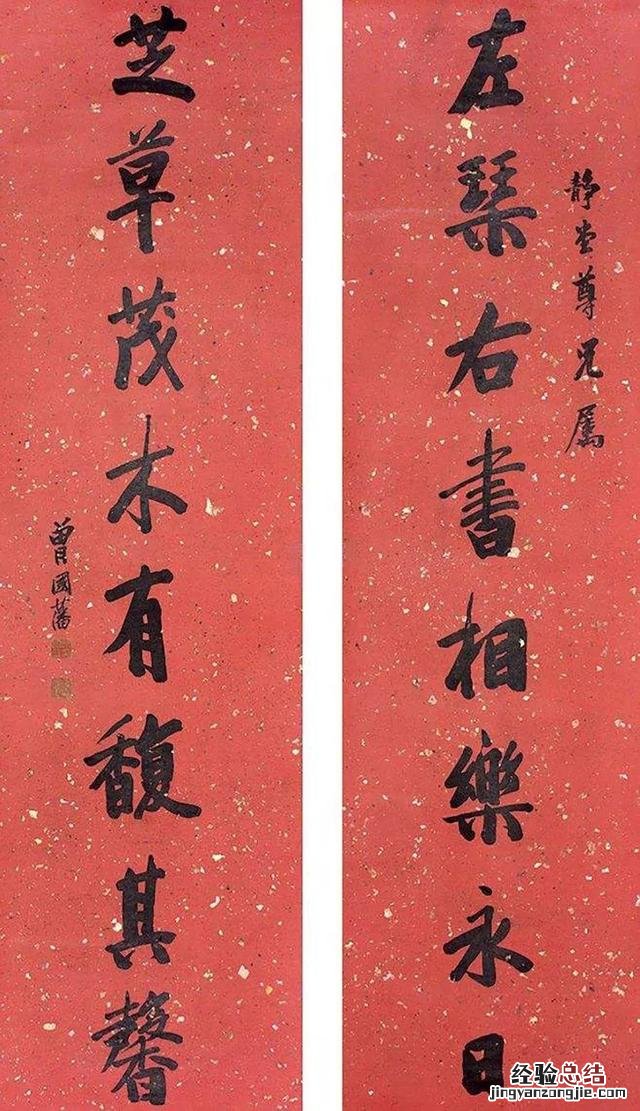 左琴右書相樂永日
靜堂尊兄屬
芝草茂木有馥其馨
曾國藩
经验总结
jingyanzongjie.com